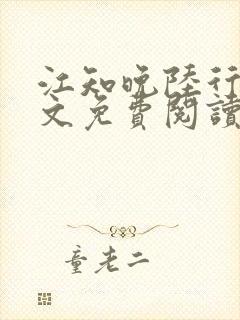 江知晚陸行
文免費閱讀
童老二